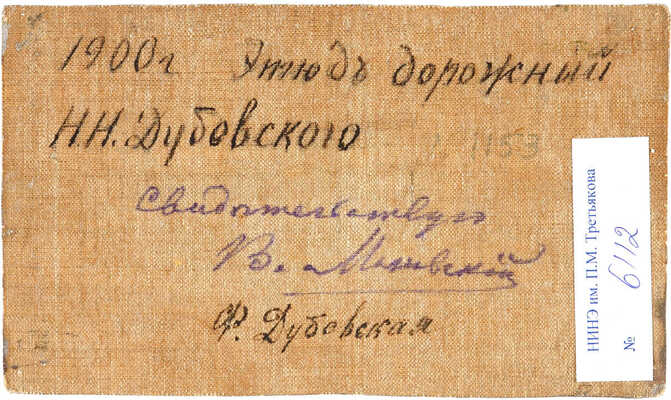 1900 г Этюдъ дорожный
Н.Н. Дубовского
1153
Свидѣтельствую
В.
Ф. Дубовская
НИНЭ им. П.М. Третьякова
№ 6112